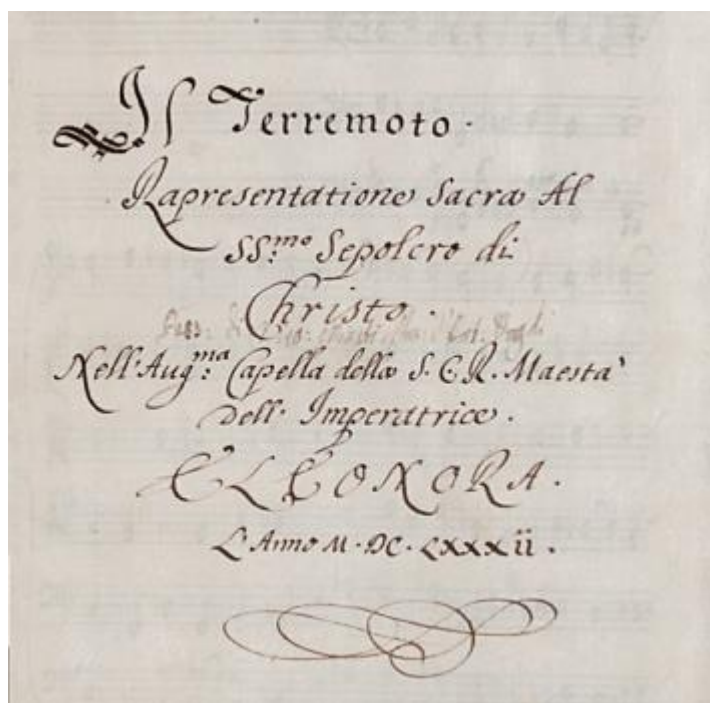 Il Terremoto.
Rapresentatione Sacra Al
SS:mo Sepolcro di
Christo.
Nell'Aug:ma Capella della S.C.R. Maestà
Dell' Imperatrice.
ELEONORA.
L'Anno M.DC.LXXXii.